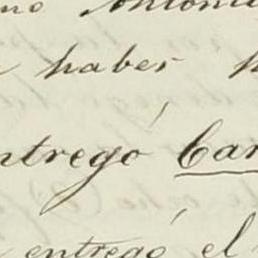 no Antoni
haber
ntregó Car
entregó el